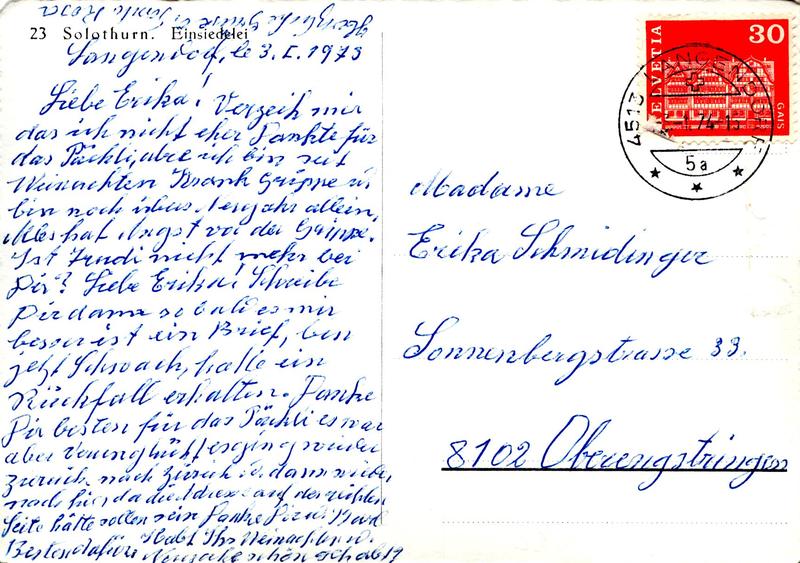 23 Solothurn. Einsiedelei
Langendorf, le 3. I. 1973
Liebe Erika! Verzeih mir
das ich nicht eher Dankte für
das Päckli, aber ich bin seit
Weinachten Krank Grippe u
bin noch über Neujahr allein,
Alles hat Angst vor der Grippe.
Ist Trudi nicht mehr bei
Dir? Liebe Erika! Schreibe
Dir dann sobald es mir
besser ist ein Brief, bin
jetzt Schwach, hatte ein
Rückfall erhalten. Danke
Dir besten für das Päckli es war
aber verunglückt es ging wieder
zurück nach Zürich u. dann wieder
nach hier, da die Adresse auf der rechten
Seite hätte sollen sein Danke Dir
Besten dafür Habt Ihr Weinachten u.
Neujahr schön gehabt?
Grüsse Tante Rosa
HELVETIA
30
GAIS
4513 LANGENDORF
-1.74-1
5a
Madame
Erika Schmidinger
Sonnenbergstrasse 33.
8102 Oberengstringen